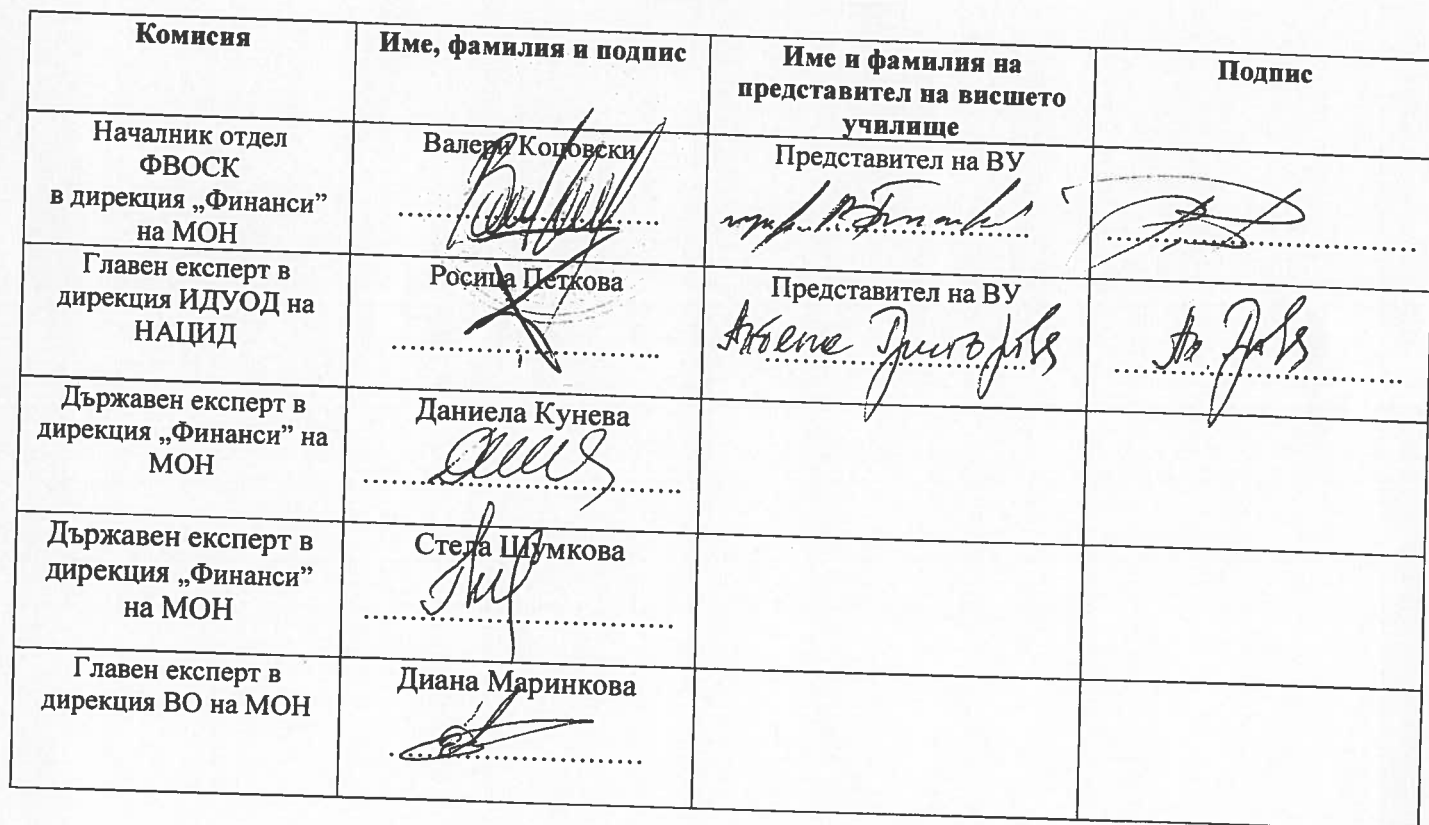 Комисия
Име, фамилия и подпис
Име и фамилия на
представител на висшето
училище
Подпис
Началник отдел
ФВОСК
в дирекция „Финанси”
на МОН
Валери Коцовски
Представител на ВУ
Главен експерт в
дирекция ИДУОД на
НАЦИД
Росица Петкова
Представител на ВУ
Държавен експерт в
дирекция „Финанси” на
МОН
Даниела Кунева
Държавен експерт в
дирекция „Финанси”
на МОН
Стела Шумкова
Главен експерт в
дирекция ВО на МОН
Диана Маринкова